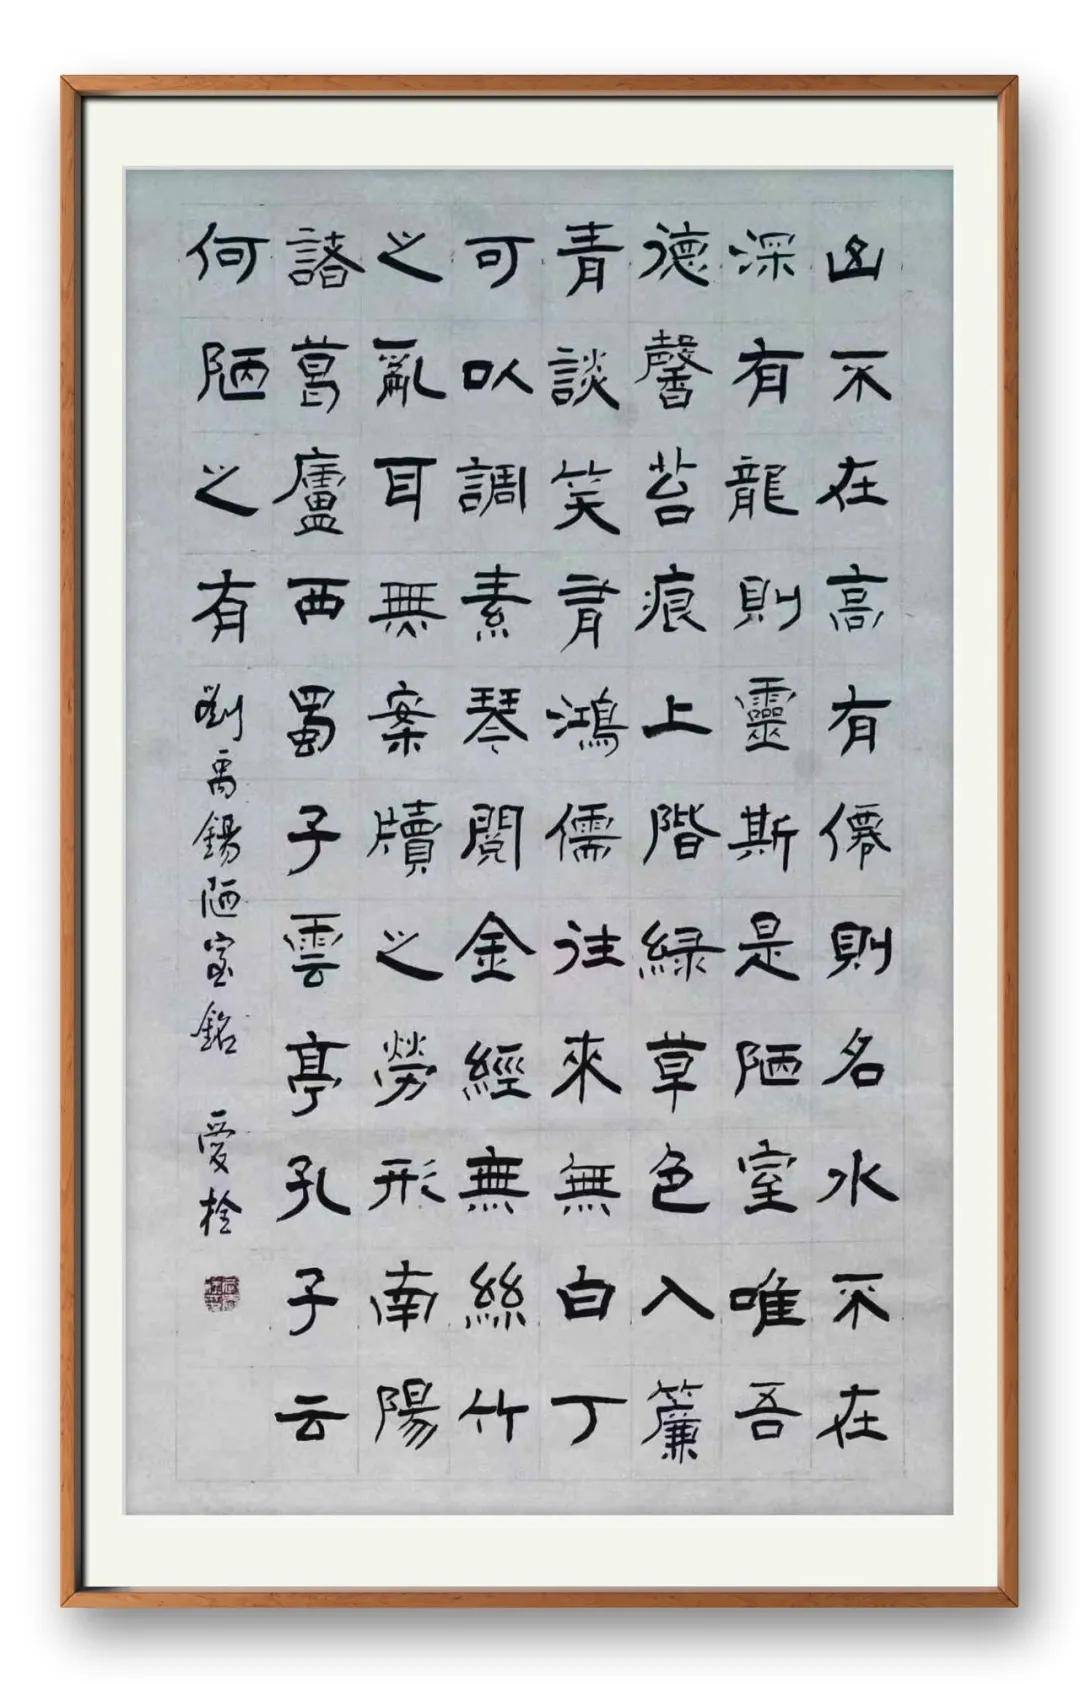 山不在高有僊則名水不在
深有龍則靈斯是陋室唯吾
德馨苔痕上階緑草色入簾
青談笑有鴻儒往來無白丁
可以調素琴閱金經無絲竹
之亂耳無案牘之勞形南陽
諸葛廬西蜀子雲亭孔子云
何陋之有 劉禹錫陋室銘 愛栓